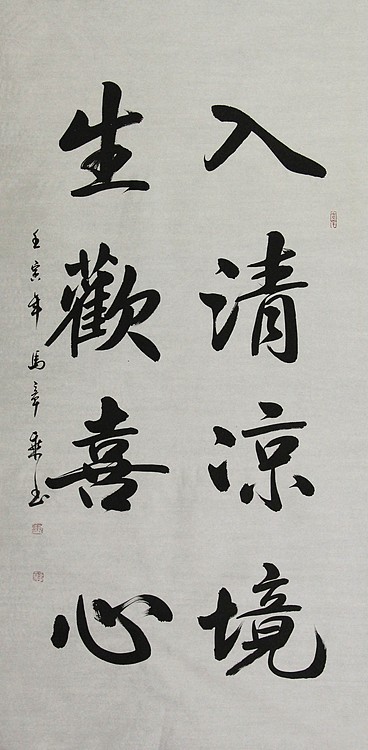 入清涼境
生歡喜心
壬寅年馬章乘書